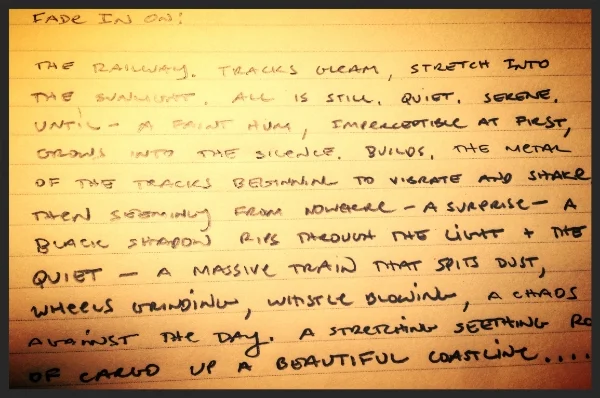 FADE IN ON:
THE RAILWAY. TRACKS GLEAM, STRETCH INTO
THE SUNLIGHT. ALL IS STILL. QUIET. SERENE.
UNTIL - A FAINT HUM, IMPERCEPTIBLE AT FIRST,
GROWS INTO THE SILENCE. BUILDS, THE METAL
OF THE TRACKS BEGINNING TO VIBRATE AND SHAKE
THEN SEEMINGLY FROM NOWHERE - A SURPRISE - A
BLACK SHADOW RIPS THROUGH THE LIGHT + THE
QUIET - A MASSIVE TRAIN THAT SPITS DUST,
WHEELS GRINDING, WHISTLE BLOWING, A CHAOS
AGAINST THE DAY. A STRETCHING SEETHING
OF CARGO UP A BEAUTIFUL COASTLINE....